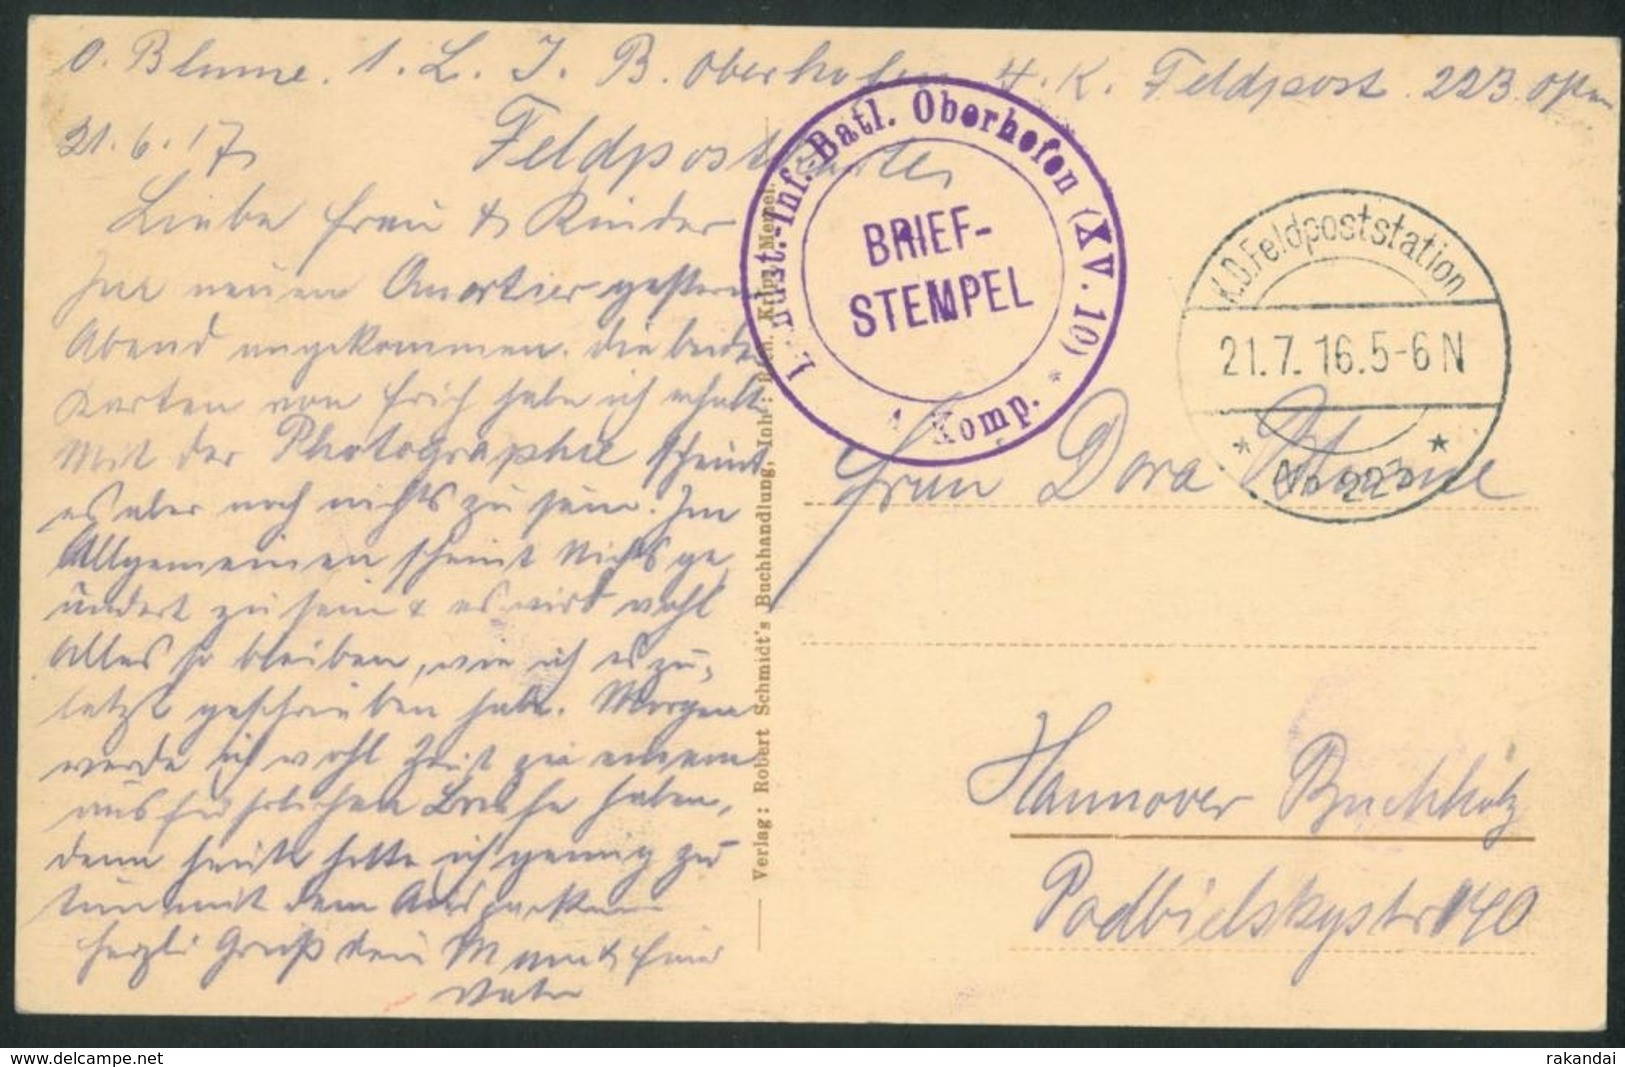 O. Blume. 1. L. I. B. Oberhofen 4. K. Feldpost. 223. Osten
21. 6. 17
Feldpostkarte,
Liebe Frau & Kinder
Im neuen Quartier gestern
Abend angekommen. Die beiden
Karten von Erich habe ich erhalt.
Mit der Photographie scheint
es aber noch nichts zu sein. Im
Allgemeinen scheint Nichts ge
ändert zu sein & es wird wohl
Alles so bleiben, wie ich es zu-
letzt geschrieben habe. Morgen
werde ich wohl Zeit zu einem
ausführlichen Briefe haben,
denn heute hatte ich genug zu
tun mit dem Auspacken
herzl. Gruß Dein Mann &
Vater
Verlag: Robert Schmidt's Buchhandlung, Inh.: Rich. Krips, Memel.
Landst.-Inf.-Batl. Oberhofen (XV. 10) *
Komp.
BRIEF-
STEMPEL
K.D. Feldpoststation
21.7.16.5-6N
* No 223 *
Frau Dora Blume
Hannover Buchholz
Podbielskystr 140
delcampe.net
rakandai